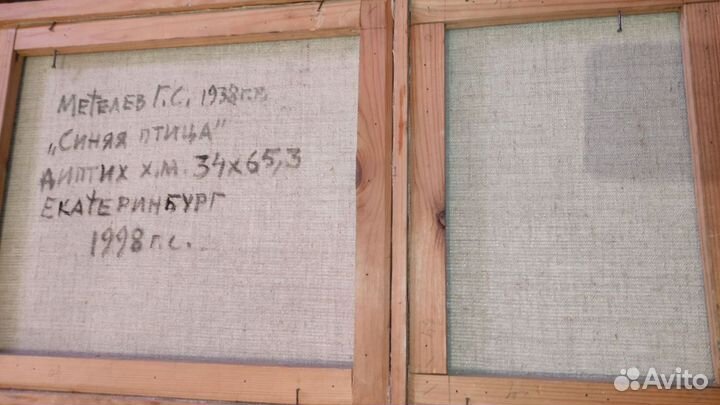 МЕТЕЛЕВ Г.С. 1938 г.р.
„СИНЯЯ ПТИЦА"
ДИПТИХ Х.М. 34х65,3
ЕКАТЕРИНБУРГ
1998 г.с.
Avito